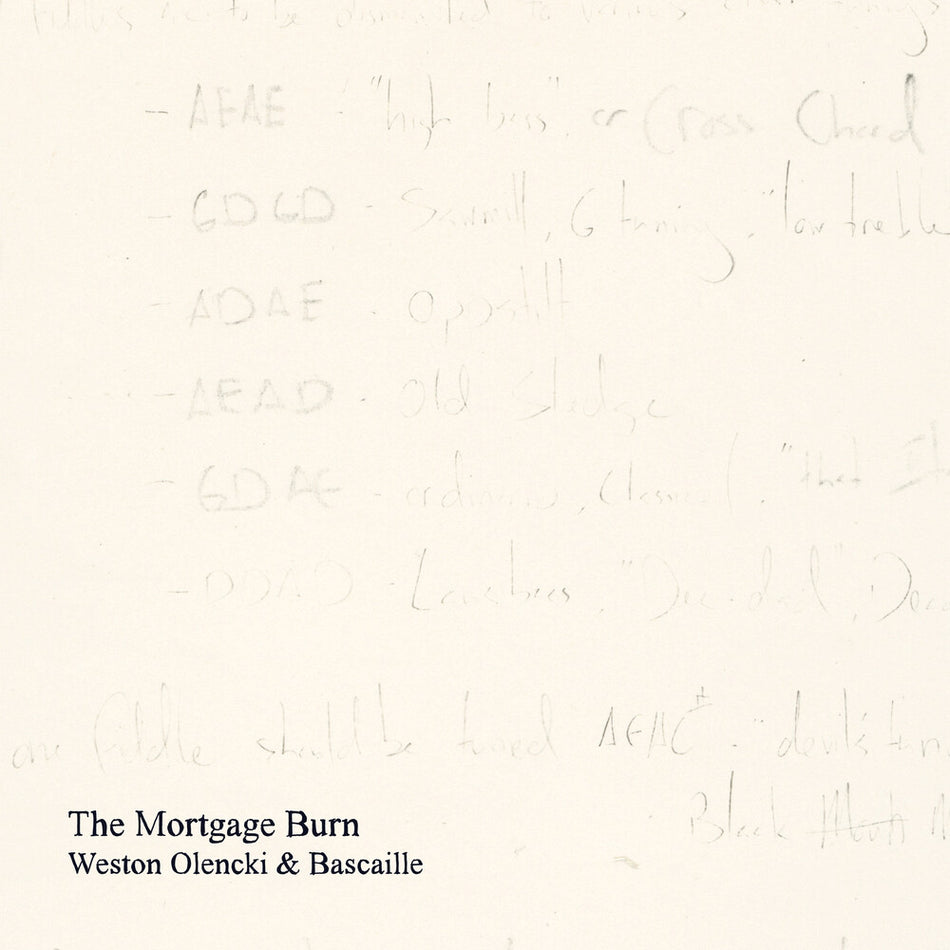 Fiddles are to be dismantled to various cross tunings
- AEAE - "high bass", or Cross Chord
- GDGD - Sawmill, G tuning, "low treble
- ADAE -
- AEAD - Old Sledge
- GDAE - ordinario, Classical, "that
- DDAD - "Dee-dad",
one fiddle should be tuned AEAC# - "devil's
Black
The Mortgage Burn
Weston Olencki & Bascaille